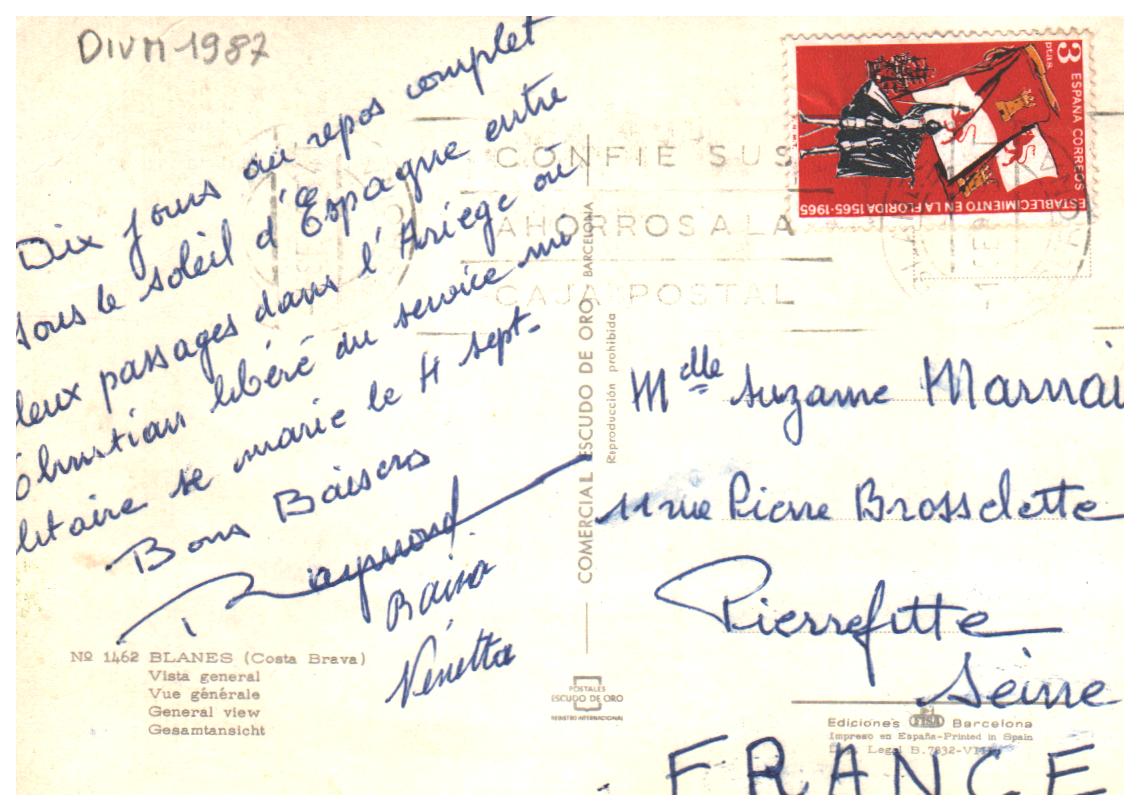 DIVM 1987
Dix jours au repos complet
sous le soleil d'Espagne entre
deux passages dans l'Ariège où
Christian libéré du service mi
litaire se marie le 4 sept.
Bons Baisers
Raymond
Baisa
Vénetta
Nº 1462 BLANES (Costa Brava)
Vista general
Vue générale
General view
Gesamtansicht
COMERCIAL ESCUDO DE ORO BARCELONA
Reproducción prohibida
POSTALES
ESCUDO DE ORO
REGISTRO INTERNACIONAL
3 ptas.
ESPAÑA CORREOS
ESTABLECIMIENTO EN LA FLORIDA 1565-1965
CONFIE SUS
AHORROS A LA
CAJA POSTAL
Mdlle Suzanne Marnai
11 rue Pierre Brosselette
Pierrefitte
Seine
FRANCE
Ediciones FISA Barcelona
Impreso en España-Printed in Spain
Dep. Legal B. 7832-VI